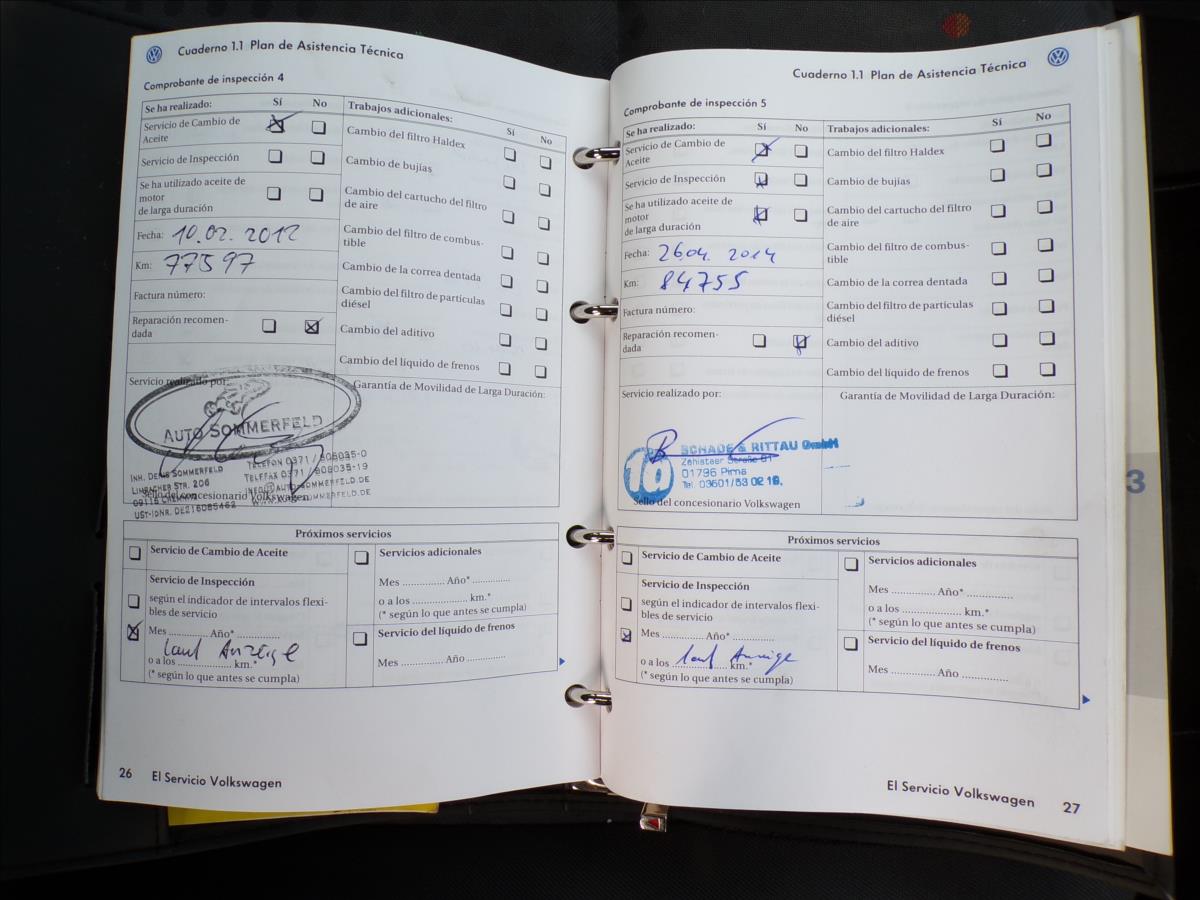 Cuaderno 1.1 Plan de Asistencia Técnica
Comprobante de inspección 4
Se ha realizado: Sí No
Servicio de Cambio de
Aceite
Servicio de Inspección
Se ha utilizado aceite de
motor
de larga duración
Fecha: 10.02.2012
Km: 77597
Factura número:
Reparación recomen-
dada
Trabajos adicionales: Sí No
Cambio del filtro Haldex
Cambio de bujías
Cambio del cartucho del filtro
de aire
Cambio del filtro de combus-
tible
Cambio de la correa dentada
Cambio del filtro de partículas
diésel
Cambio del aditivo
Cambio del líquido de frenos
Servicio realizado por:
Garantía de Movilidad de Larga Duración:
AUTO SOMMERFELD
INH. DENIS SOMMERFELD
LIMBACHER STR. 206
09116 CHEMNITZ
UST-IDNR. DE216085462
TELEFON 0371 / 808035-0
TELEFAX 0371 / 808035-19
INFO@AUTO-SOMMERFELD.DE
Sello del concesionario Volkswagen
Próximos servicios
Servicio de Cambio de Aceite
Servicio de Inspección
según el indicador de intervalos flexi-
bles de servicio
Mes ............. Año* .............
laut Anzeige
o a los ...................... km.*
(* según lo que antes se cumpla)
Servicios adicionales
Mes ............. Año* .............
o a los ...................... km.*
(* según lo que antes se cumpla)
Servicio del líquido de frenos
Mes ............. Año .............
26 El Servicio Volkswagen
Cuaderno 1.1 Plan de Asistencia Técnica
Comprobante de inspección 5
Se ha realizado: Sí No
Servicio de Cambio de
Aceite
Servicio de Inspección
Se ha utilizado aceite de
motor
de larga duración
Fecha: 26.04. 2014
Km: 84755
Factura número:
Reparación recomen-
dada
Trabajos adicionales: Sí No
Cambio del filtro Haldex
Cambio de bujías
Cambio del cartucho del filtro
de aire
Cambio del filtro de combus-
tible
Cambio de la correa dentada
Cambio del filtro de partículas
diésel
Cambio del aditivo
Cambio del líquido de frenos
Servicio realizado por:
Garantía de Movilidad de Larga Duración:
SCHADE & RITTAU GmbH
Zehistaer Straße
01796 Pirna
Sello del concesionario Volkswagen
Próximos servicios
Servicio de Cambio de Aceite
Servicio de Inspección
según el indicador de intervalos flexi-
bles de servicio
Mes ............. Año* .............
laut Anzeige
o a los ...................... km.*
(* según lo que antes se cumpla)
Servicios adicionales
Mes ............. Año* .............
o a los ...................... km.*
(* según lo que antes se cumpla)
Servicio del líquido de frenos
Mes ............. Año .............
El Servicio Volkswagen 27
3